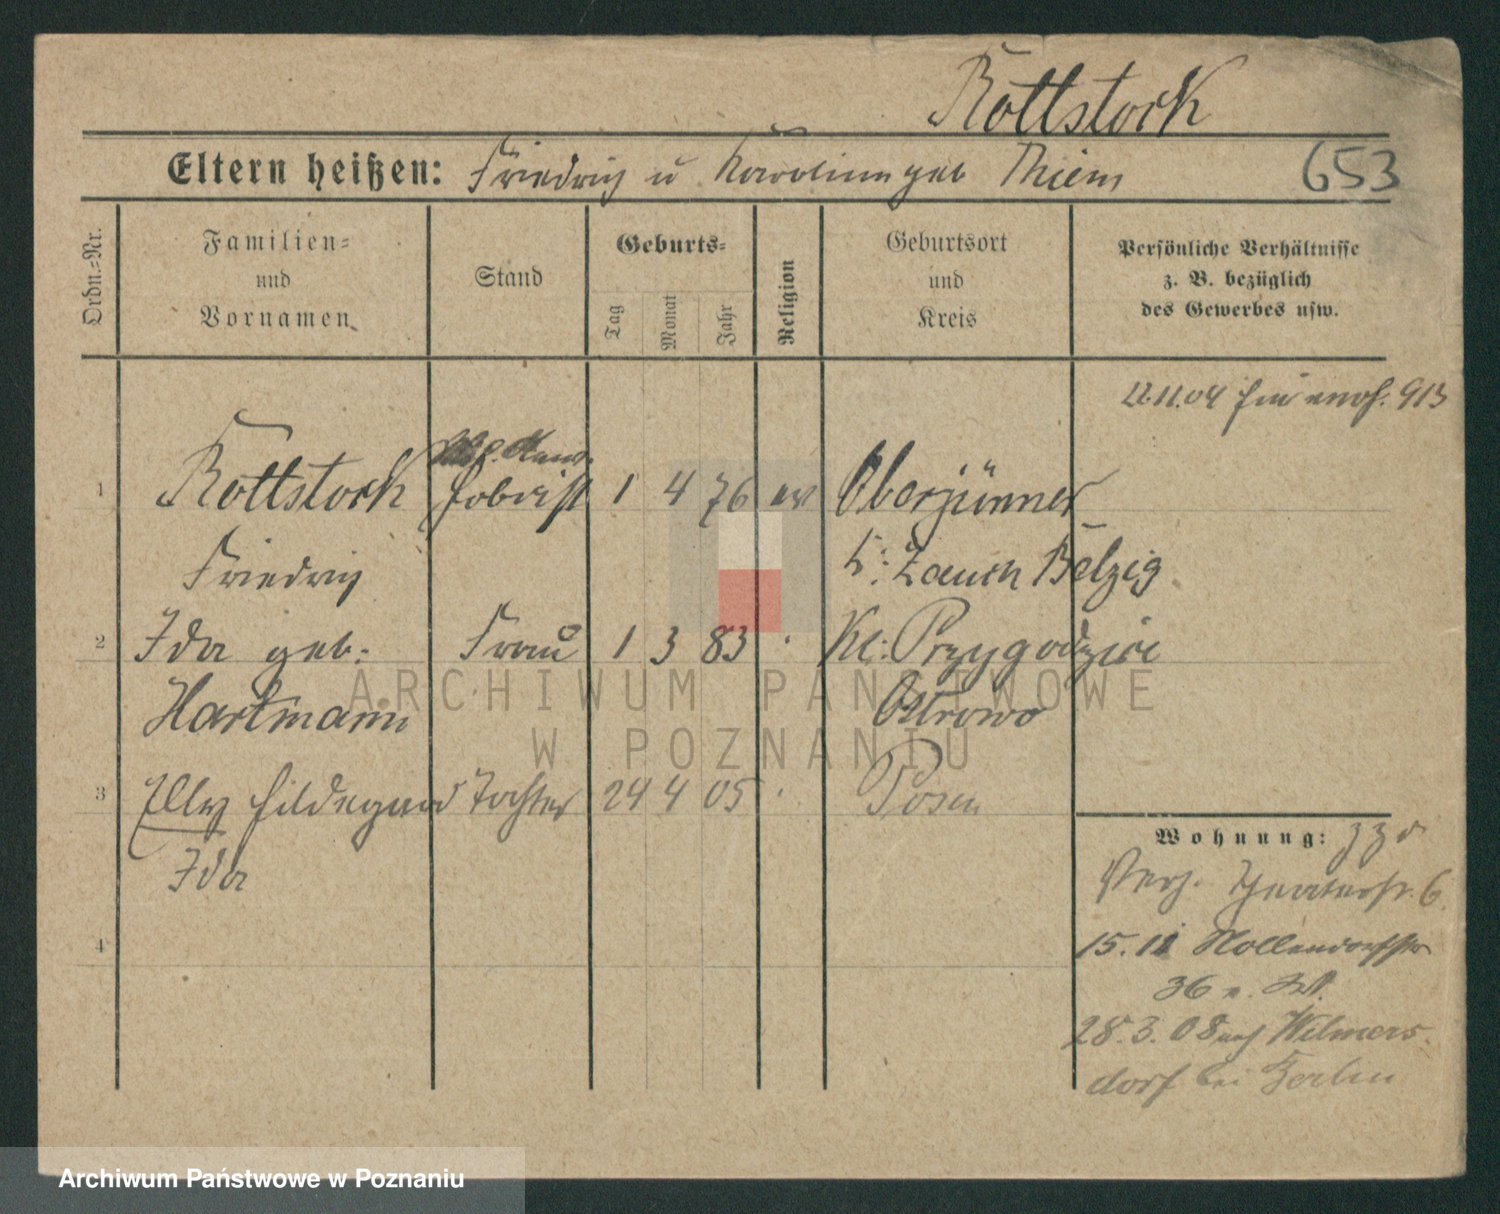 Rottstock
Eltern heißen: Friedrich u Karoline geb Thiem 653
Ordn.-Nr.
Familien-
und
Vornamen
Stand
Geburts-
Tag
Monat
Jahr
Religion
Geburtsort
und
Kreis
Persönliche Verhältnisse
z. B. bezüglich
des Gewerbes usw.
913
1 Rottstock 1 4 76 ev
Friedrich K: Zauch Belzig
2 Ida geb: Frau 1 3 83 Kl: Przygodzice
Hartmann Ostrowo
3 Elly Hildegard Tochter 24 4 05 Posen
Ida
4
Wohnung:
6
15.11 Nollendorfstr
36
28.3.08 nach Wilmers-
dorf bei Berlin
ARCHIWUM PAŃSTWOWE
W POZNANIU
Archiwum Państwowe w Poznaniu